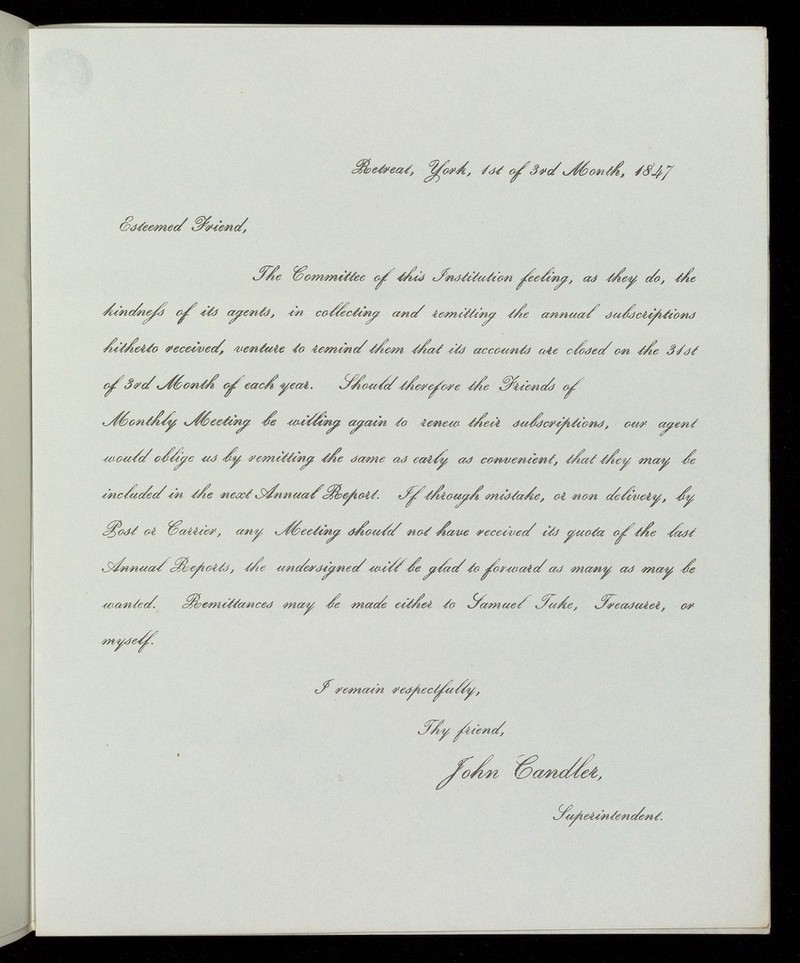 Retreat, York, 1st of 3rd Month, 1847
Esteemed Friend,
The Committee of this Institution feeling, as they do, the
kindneſs of its agents, in collecting and remitting the annual subscriptions
hitherto received, venture to remind them that its accounts are closed on the 31st
of 3rd Month of each year. Should therefore the Friends of
Monthly Meeting be willing again to renew their subscriptions, our agent
would oblige us by remitting the same as early as convenient, that they may be
included in the next Annual Report. If through mistake, or non delivery, by
Post or Carrier, any Meeting should not have received its quota of the last
Annual Reports, the undersigned will be glad to forward as many as may be
wanted. Remittances may be made either to Samuel Tuke, Treasurer, or
myself.
I remain respectfully,
Thy friend,
John Candler,
Superintendent.